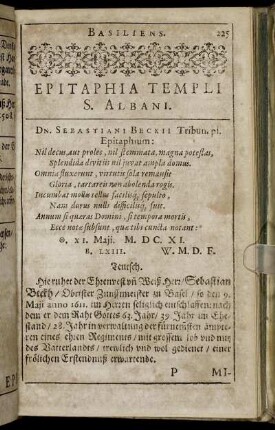 BASILIENS. 225
EPITAPHIA TEMPLI
S. ALBANI.
DN. SEBASTIANI BECKII Tribun. pl.
Epitaphium:
Nil decus aut proles, nil stemmata, magna potestas,
Splendida divitiis nil juvat ampla domus.
Omnia fluxerunt, virtutis sola remansit
Gloria, tartareis non abolenda rogis.
Incumbat mollis tellus facilisq́; sepulto,
Nam durus nulli difficilisq́; fuit.
Annum si quæras Domini, si tempora mortis,
Ecce notæ subsunt, quæ tibi cuncta notant:
XI. Maji. M. DC. XI.
Æ. LXIII. W. M. D. F.
Teutsch.
Hie ruhet der Ehrenvest vñ Weiß Herr / Sebastian
Beckh / Obrister Zunfftmeister zu Basel / so den 9.
Maji anno 1611. im Herren seliglich entschlaffen: nach
dem er dem Raht Gottes 63. Jahr / 39. Jahr im Ehe-
stand / 28. Jahr in verwaltung der fürnemsten ämpte-
ren eines ehren Regiments / mit grossem lob und nutz
des Vatterlandes / trewlich und wol gedienet / einer
frölichen Erstendnuß erwartende.
P MI-